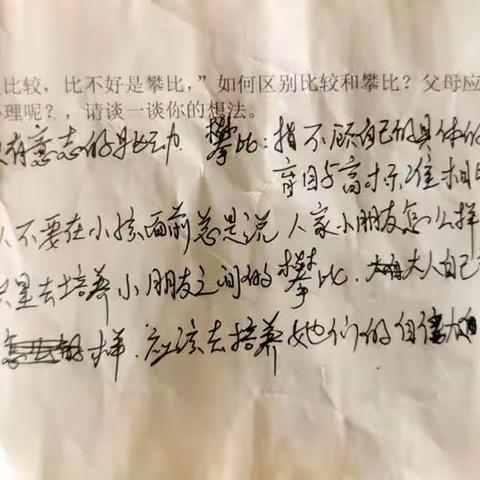 比较，比不好是攀比，”如何区别比较和攀比？父母应
理呢？，请谈一谈你的想法。
有意志的 动 攀比：指不顾自己的具体的
盲目与高标准相比
人不要在小孩面前总是说人家小朋友怎么样
里去培养小朋友之间的攀比. 大人自己
样. 应该去培养她们的自信